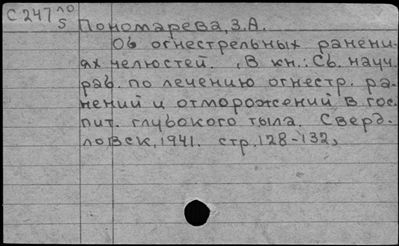 С247 ло
S
Пономарева, З.А.
Об огнестрельных ранени-
ях челюстей. , В кн.: Сб. науч.
раб. по лечению огнестр. ра-
нений и отморожений в гос-
пит. глубокого тыла. Сверд-
ловск, 1941. стр. 128-132,